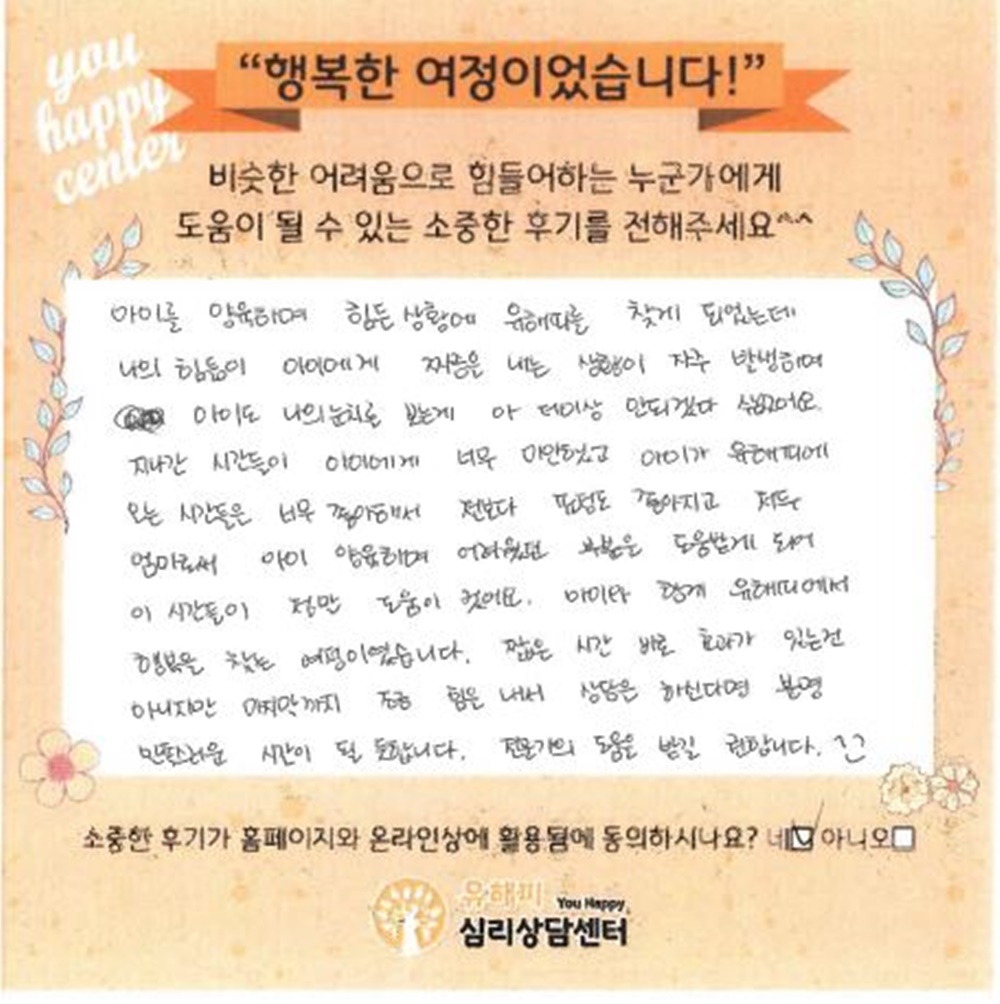 you
happy
center
“행복한 여정이었습니다!”
비슷한 어려움으로 힘들어하는 누군가에게
도움이 될 수 있는 소중한 후기를 전해주세요^^
아이를 양육하며 힘든 상황에 유해피를 찾게 되었는데
나의 힘듦이 아이에게 짜증을 내는 상황이 자주 발생하며
아이도 나의 눈치를 보는게 아 더이상 안되겠다 싶었어요.
지나간 시간들이 아이에게 너무 미안했고 아이가 유해피에
오는 시간들은 너무 좋아해서 전보다 표정도 좋아지고 저두
엄마로써 아이 양육하며 어려웠던 부분을 도움받게 되어
이 시간들이 정말 도움이 컸어요. 아이와 함께 유해피에서
행복을 찾는 여정이였습니다. 짧은 시간 바로 효과가 있는건
아니지만 마지막까지 조금 힘을 내서 상담을 하신다면 분명
만족스러운 시간이 될 듯합니다. 전문가의 도움을 받길 권합니다.
소중한 후기가 홈페이지와 온라인상에 활용됨에 동의하시나요? 네 아니오
유해피 You Happy
심리상담센터